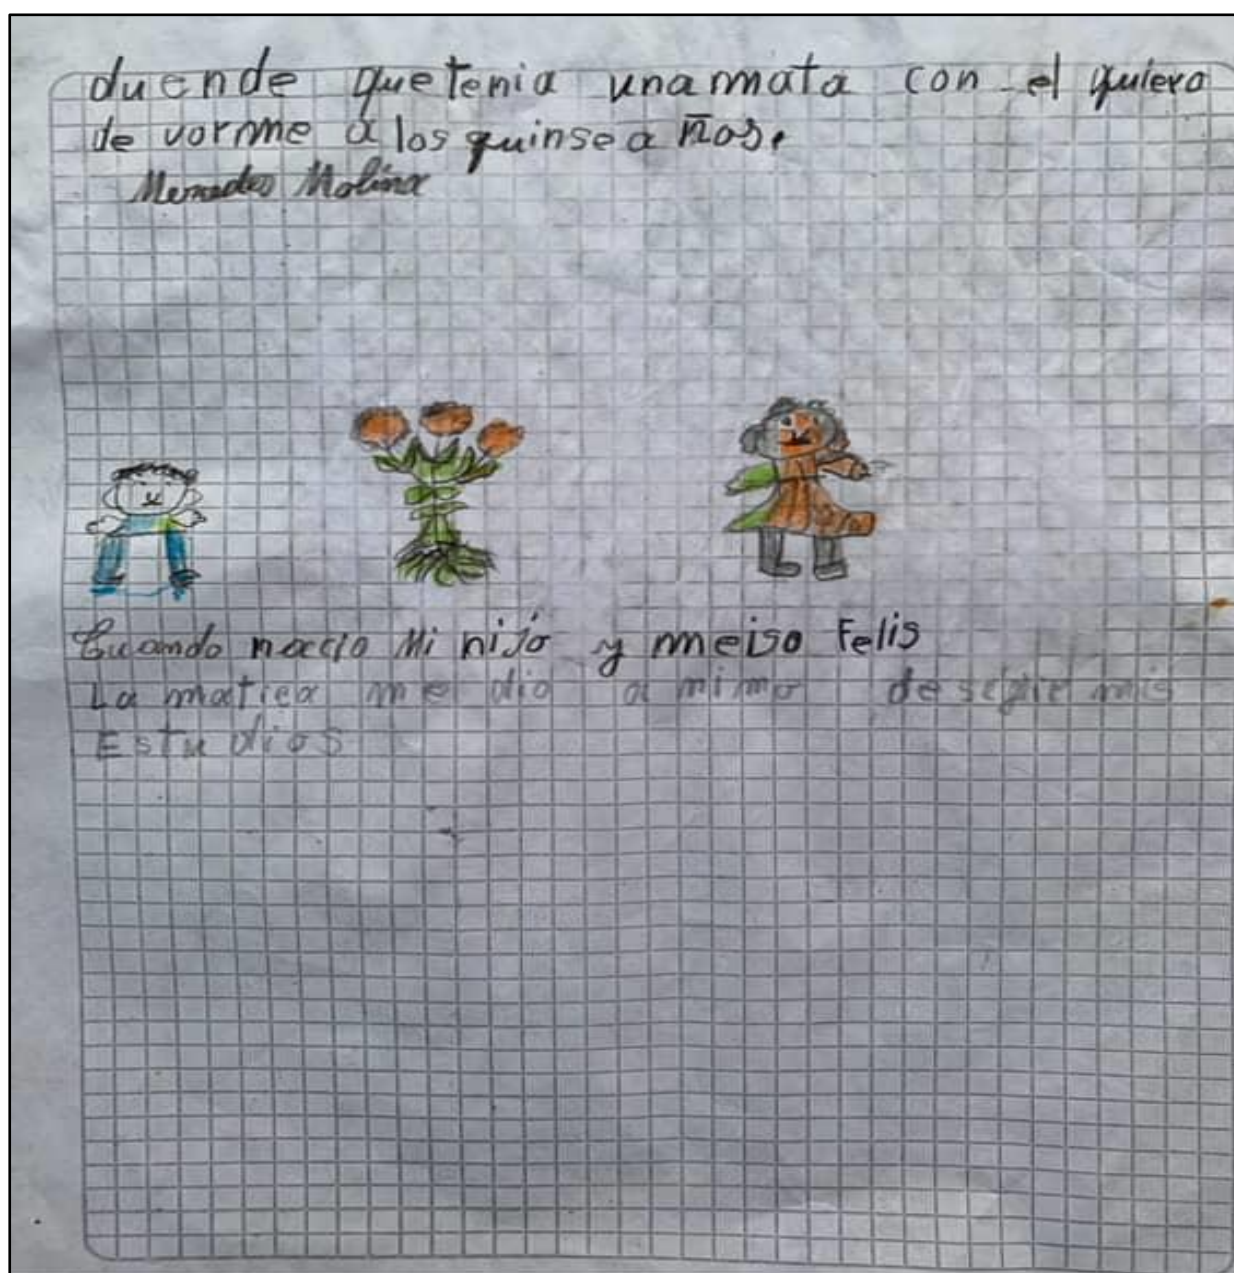 duende que tenia una mata con el quiero
de vorme a los quinse a ños.
Molina
Cuando naccio Mi hijo y meiso Felis
La matica me dio a nimo de seguir mis
Estudios